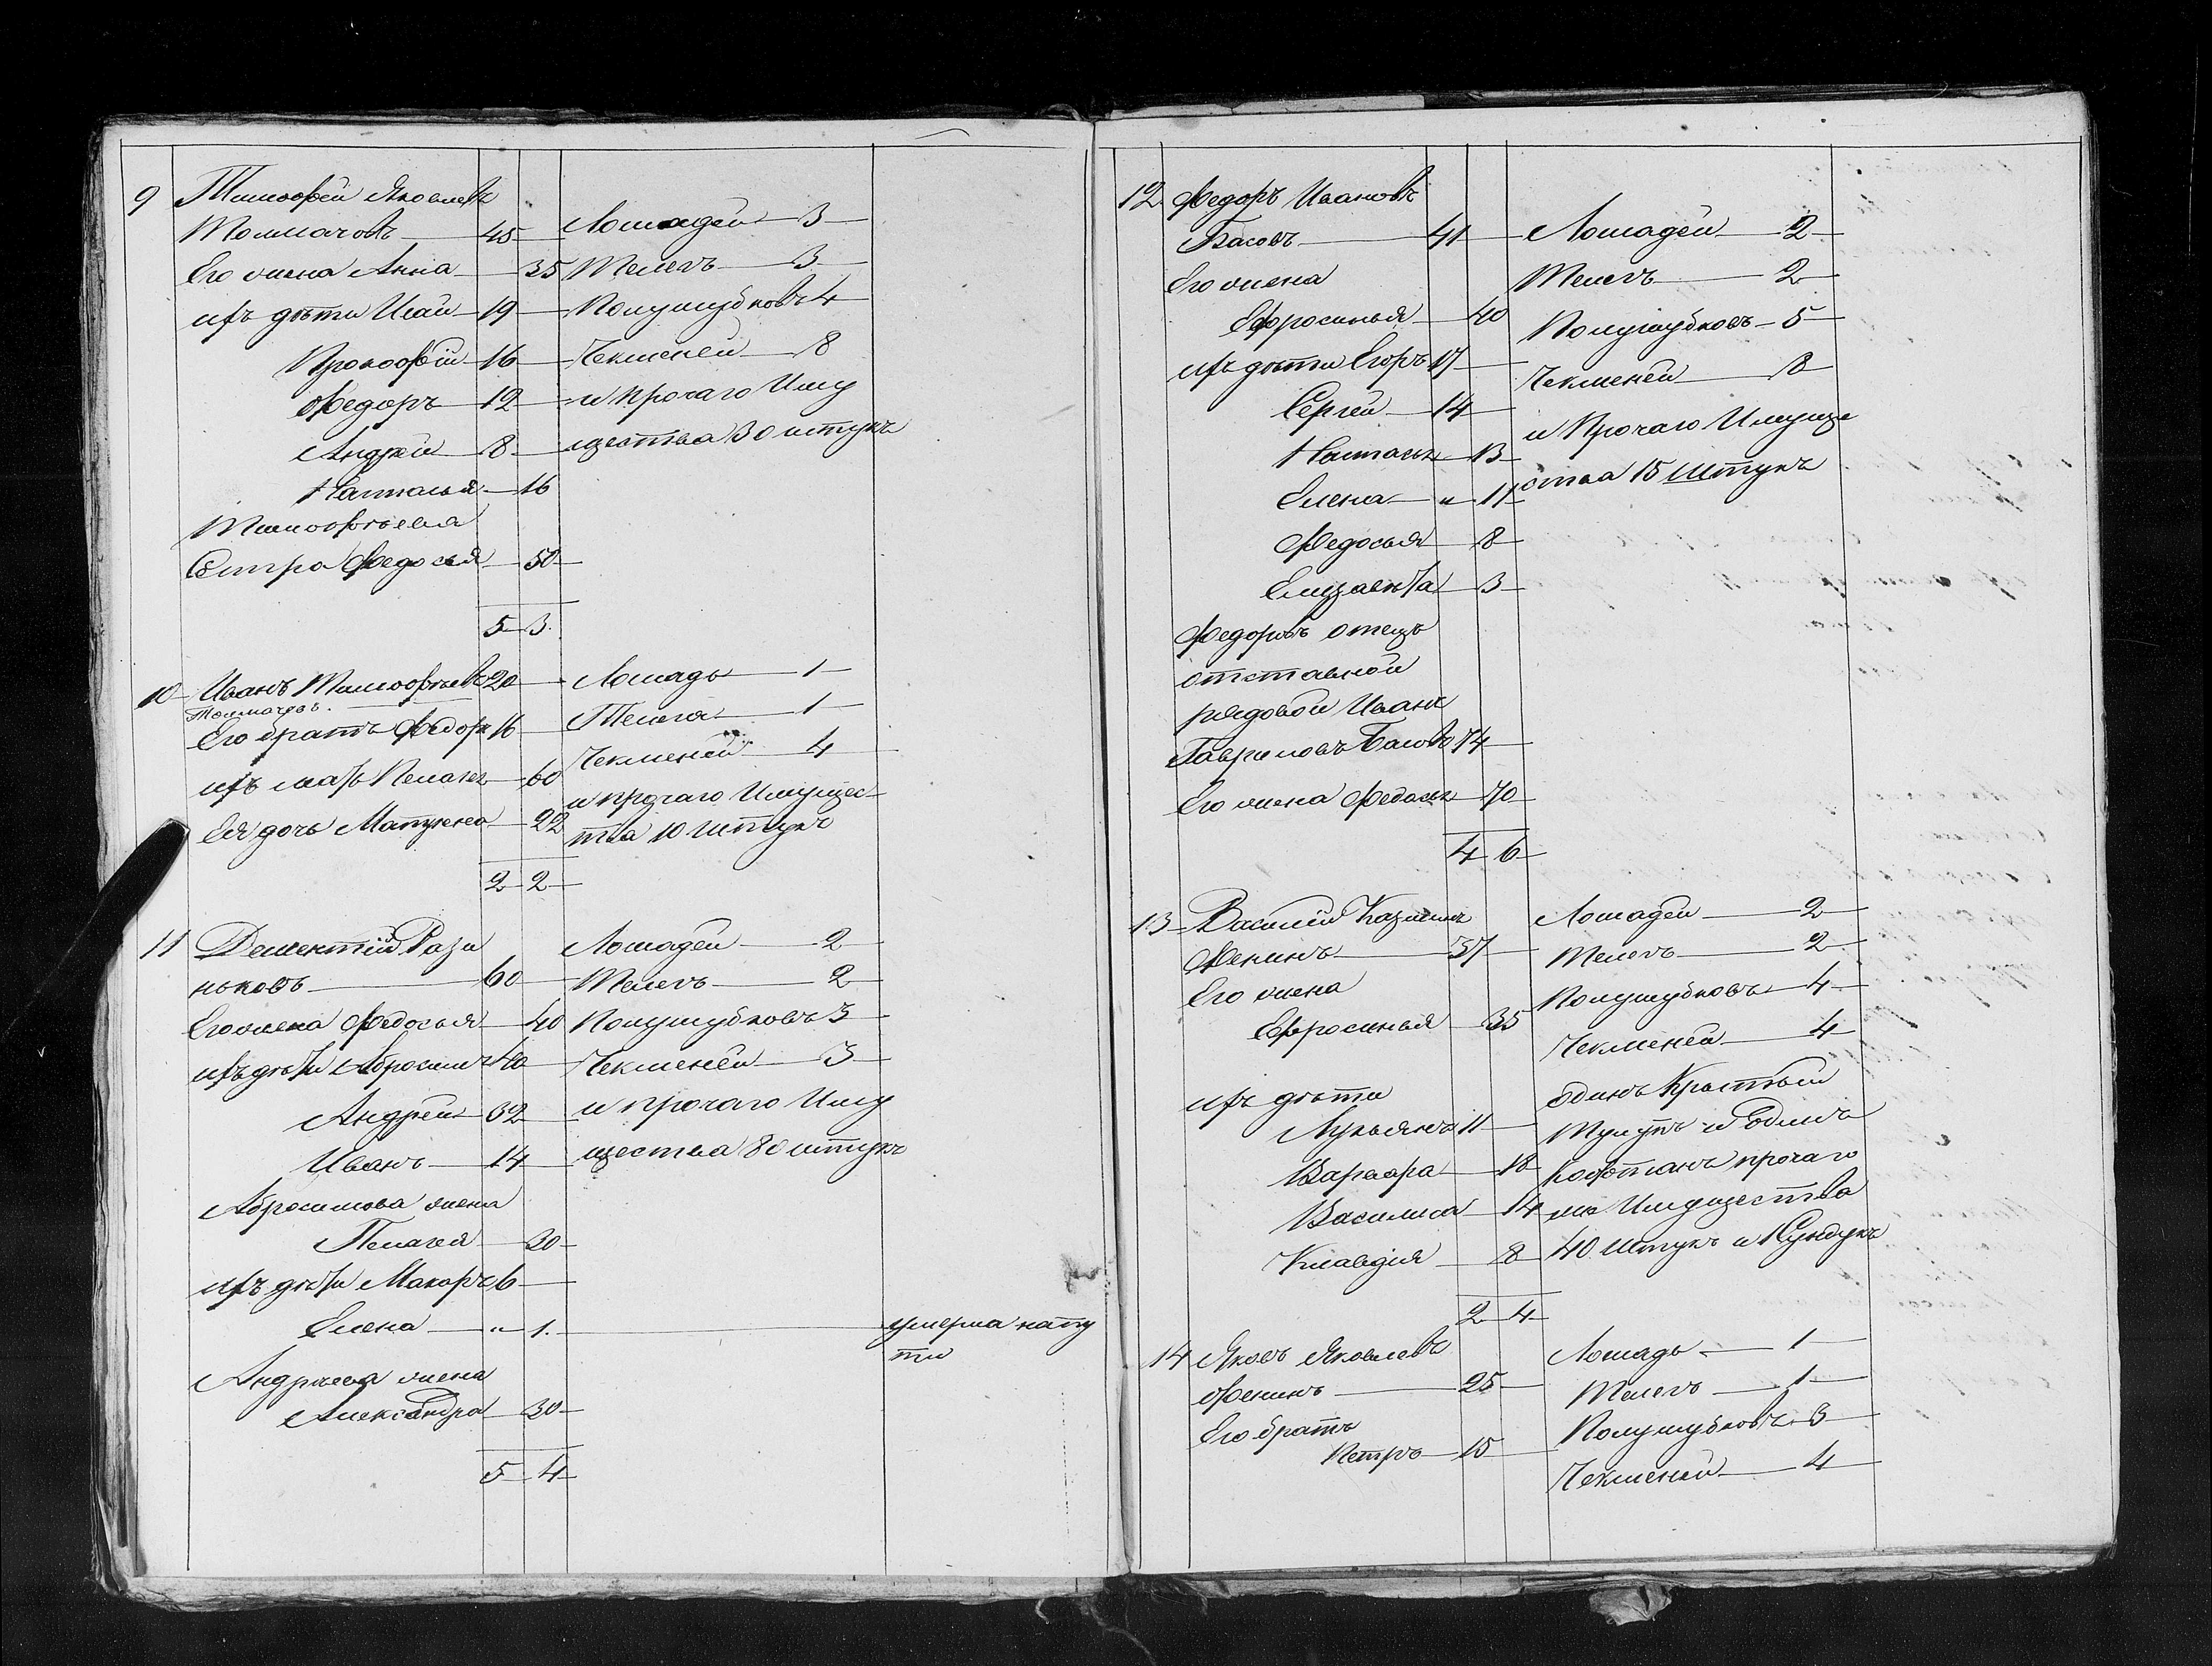 9 Тимофей Яковлевъ
Толмачовъ 45 Лошадей 3
Его жена Анна 35 Телегъ 3
ихъ дѣти Исай 19 Полушубковъ 4
Прокофий 16 Чекменей 8
Федоръ 12 и прочаго Иму
Андрей 8 щества 30 штукъ
Наталья 16
Тимофѣева
Сестра Федосья 50
5 3
10 Иванъ Тимофѣевъ 20 Лошадь 1
Толмачовъ.
Его братъ Федоръ 16 Телега 1
Чекменей 4
ихъ мать Пелагея 60
и прочаго Имущес
Ея дочь Матрена 22
тва 10 штукъ
2 2
11 Дементий Рази Лошадей 2
ньковъ 60 Телегъ 2
Его жена Федосья 40 Полушубковъ 3
ихъ дѣти Абросимъ 40 Чекменей 3
Андрей 32 и прочаго Иму
Иванъ 14 щества 80 штукъ
Абросимова жена
Пелагея 30
ихъ дѣти Макаръ 6
Елена " 1. умерла на пу
ти
Андреева жена
Александра 30
5 4
12 Федоръ Ивановъ
Басовъ 41 Лошадей 2
Его жена Телегъ 2
Ефросинья 40 Полушубковъ 5
ихъ дѣти Егоръ 17
Чекменей 8
Сергей 14
и Прочаго Имуще
Настасья 13
ства 15 Штукъ
Елена " 11
Федосья 8
Елизавета 3
Федоровъ отецъ
отставной
рядовой Иванъ
Гавриловъ Басовъ 74
Его жена Федосья 70
4 6
13 Василий Казминъ Лошадей 2
Фенинъ 37 Телегъ 2
Его жена Полушубковъ 4
Ефросинья 35
Чекменей 4
ихъ дѣти одинъ Крытый
Лукьянъ 11 Тулупъ и Одинъ
Варвара 18 кофтанъ прочаго
Василиса 14 же Имущества
Клавдия 8 40 Штукъ и 1 Сундукъ
2 4
14 Яковъ Яковлевъ Лошадь 1
Фенинъ 25 Телегъ 1
Его братъ Полушубковъ 3
Петръ 15
Чекменей 4